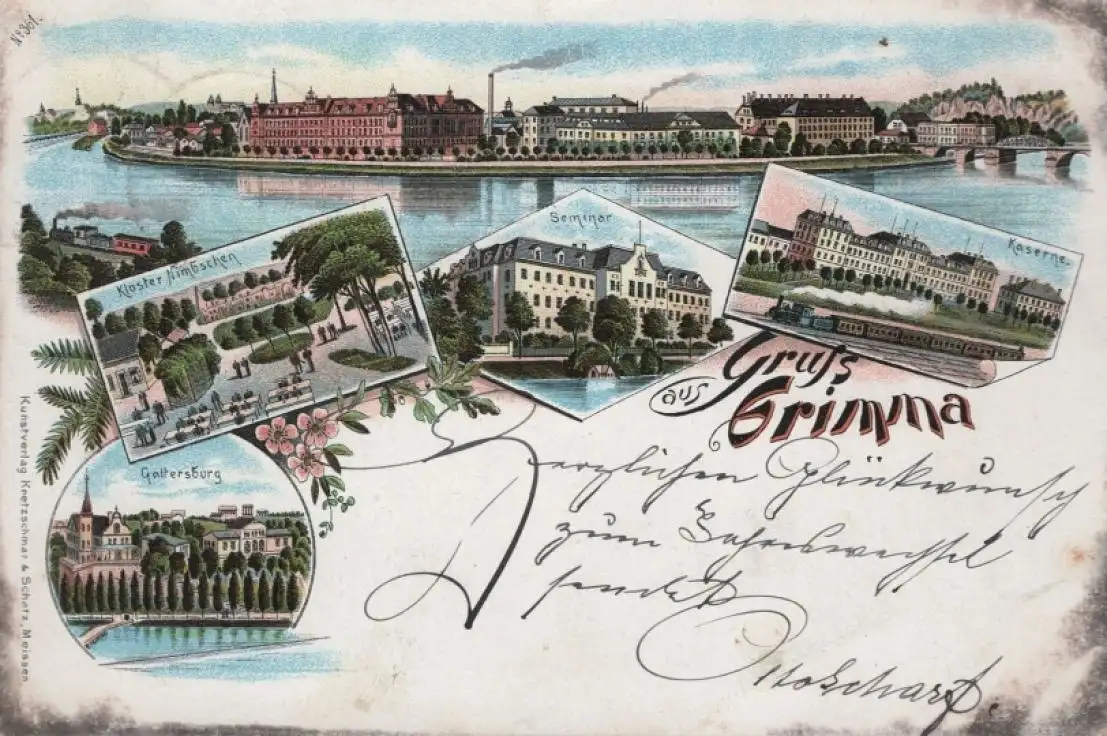 No 361.
Kloster Nimbschen
Seminar
Kaserne.
Gruß
aus
Grimma
Gattersburg
Kunstverlag Kretzschmar & Schatz, Meissen
Herzlichen Glückwunsch
zum Jahreswechsel
sendet
Otto Scharf.